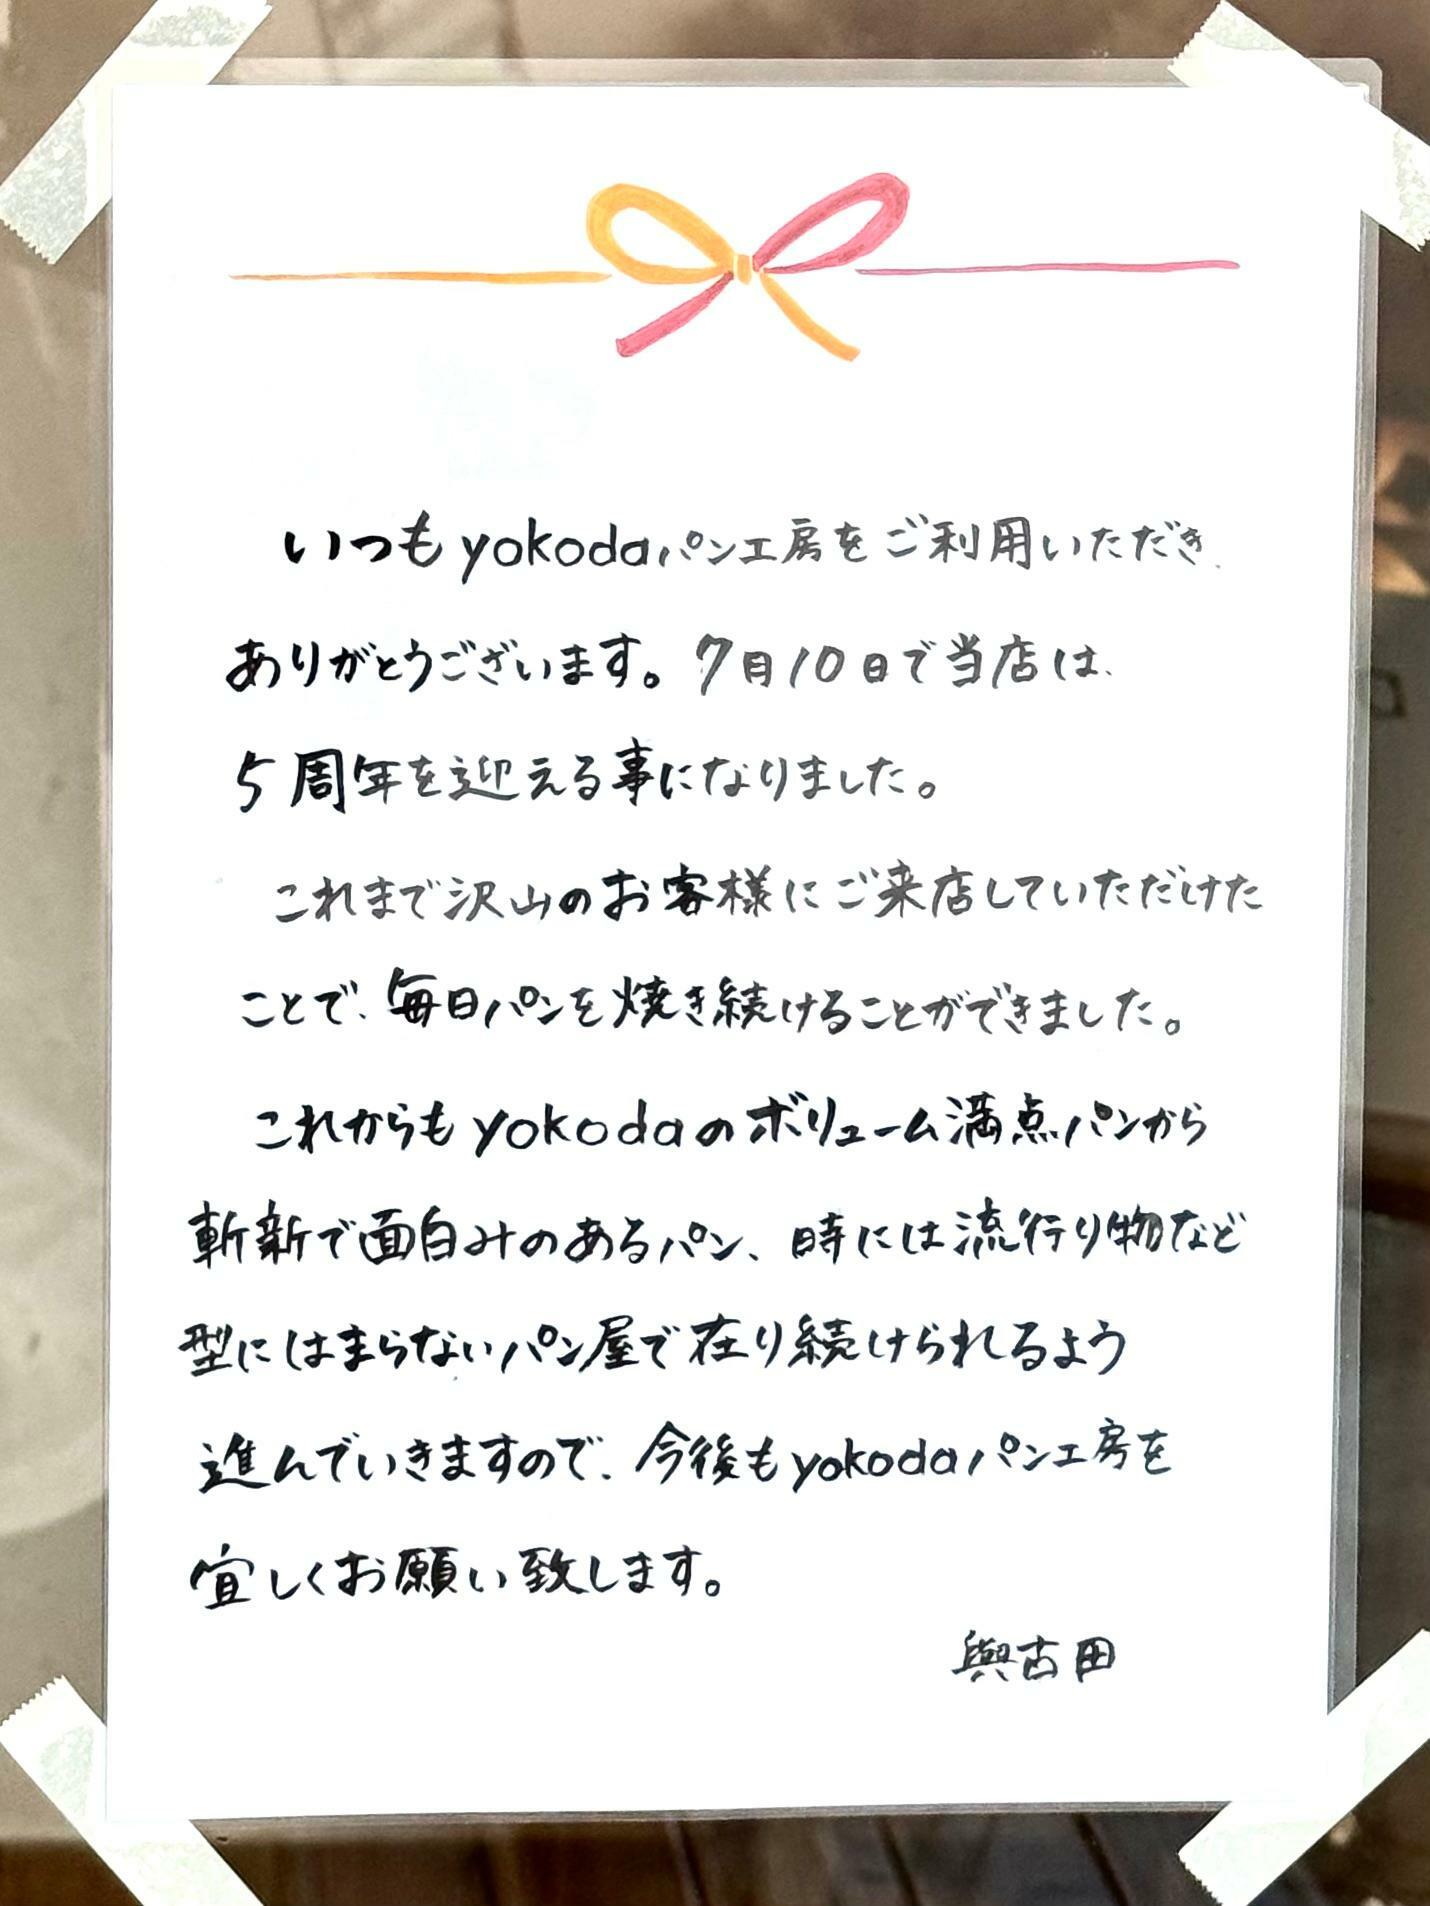 いつもyokodaパン工房をご利用いただき、
ありがとうございます。7月10日で当店は、
5周年を迎える事になりました。
これまで沢山のお客様にご来店していただけた
ことで、毎日パンを焼き続けることができました。
これからもyokodaのボリューム満点パンから
斬新で面白みのあるパン、時には流行り物など
型にはまらないパン屋で在り続けられるよう
進んでいきますので、今後もyokodaパン工房を
宜しくお願い致します。
與古田